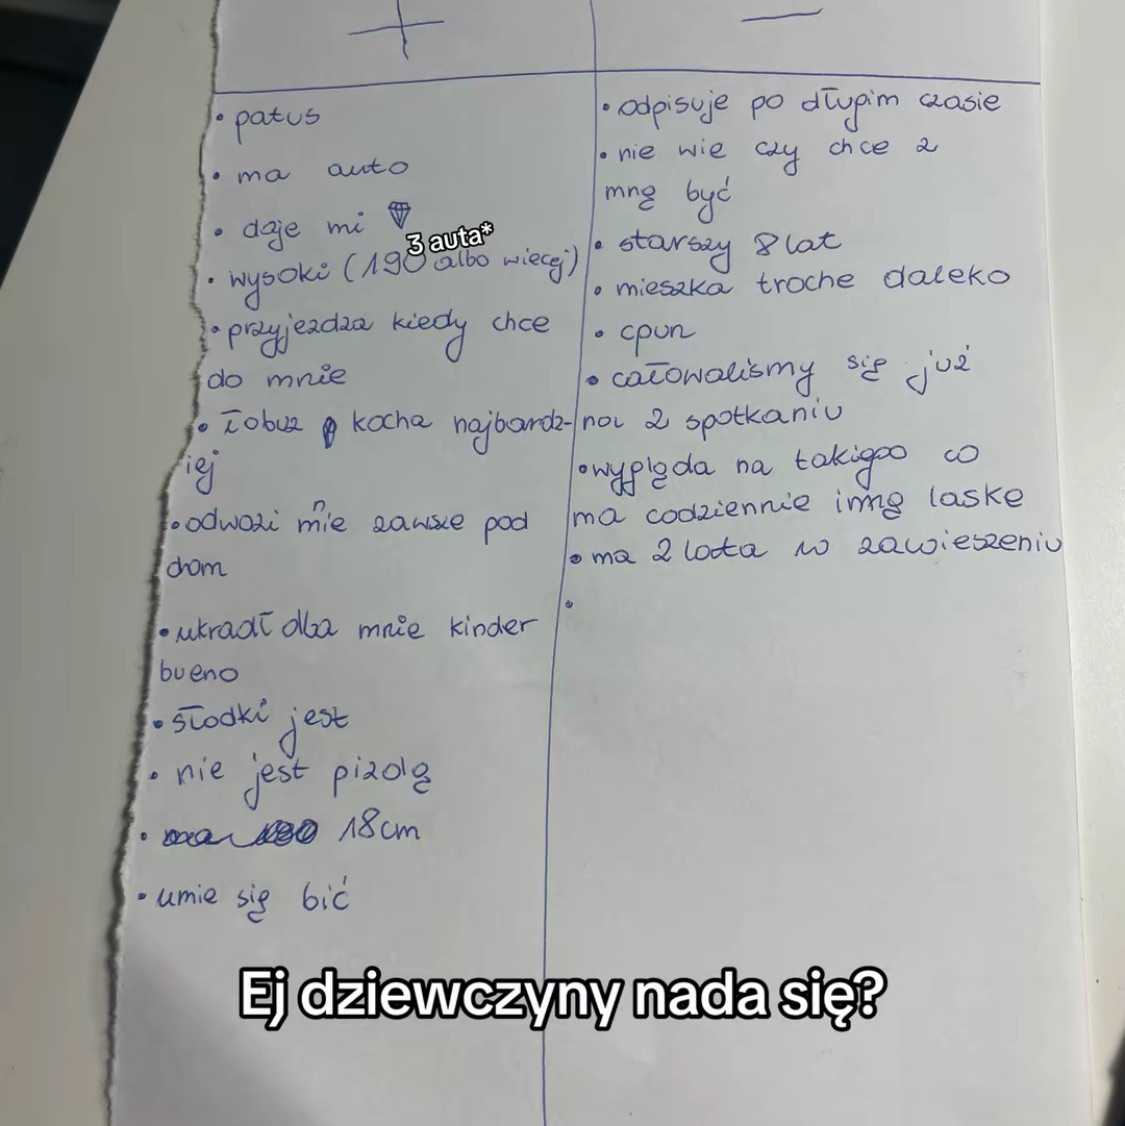 +
• patus
• ma auto
• daje mi
3 auta*
• wysoki (190 albo więcej)
• przyjezdza kiedy chce
do mnie
• łobuz kocha najbardz-
iej
• odwozi mnie zawsze pod
dom
• ukradł dla mnie kinder
bueno
• słodki jest
• nie jest pizdą
• 18cm
• umie się bić
—
• odpisuje po długim czasie
• nie wie czy chce z
mną być
• starszy 8 lat
• mieszka troche daleko
• cpun
• całowalismy się już
na 2 spotkaniu
• wygląda na takigoo co
ma codziennie inną laske
• ma 2 lata w zawieszeniu
•
Ej dziewczyny nada się?